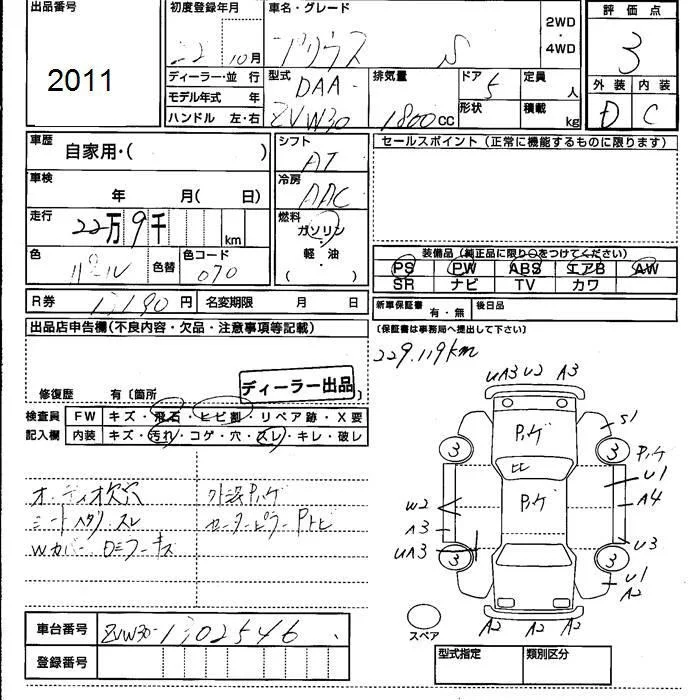 出品番号
2011
初度登録年月
22年10月
車名・グレード
プリウス S
2WD・4WD
評価点
3
外装 内装
D C
ディーラー・並行
モデル年式 年
ハンドル 左・右
型式
DAA-
ZVW30
排気量
1800cc
ドア
5
形状
定員
人
積載
kg
車歴
自家用・( )
車検
年 月( 日)
走行
22万9千 km
色
パール
色替
色コード
070
シフト
AT
冷房
AAC
燃料
ガソリン
・
軽油
( )
セールスポイント(正常に機能するものに限ります)
装備品(純正品に限り○をつけてください)
PS PW ABS エアB AW
SR ナビ TV カワ
R券 円
名変期限 月 日
新車保証書 有・無
後日品
(保証書は事務局へ提出して下さい)
出品店申告欄(不良内容・欠品・注意事項等記載)
229.119km
修復歴 有〔箇所 〕
ディーラー出品
検査員
記入欄
FW キズ・飛石・ヒビ割・リペア跡・X要
内装 キズ・汚れ・コゲ・穴・スレ・キレ・破レ
オーディオ欠穴
外装Pハゲ
UA3 U2 A3
S1
Pハゲ
3 3
Pハゲ
U1
A4
W2
A3
UA3
U3
3 3
U1
A2
A2 A2 A2
スペア
車台番号
ZVW30-1302546
登録番号
型式指定
類別区分